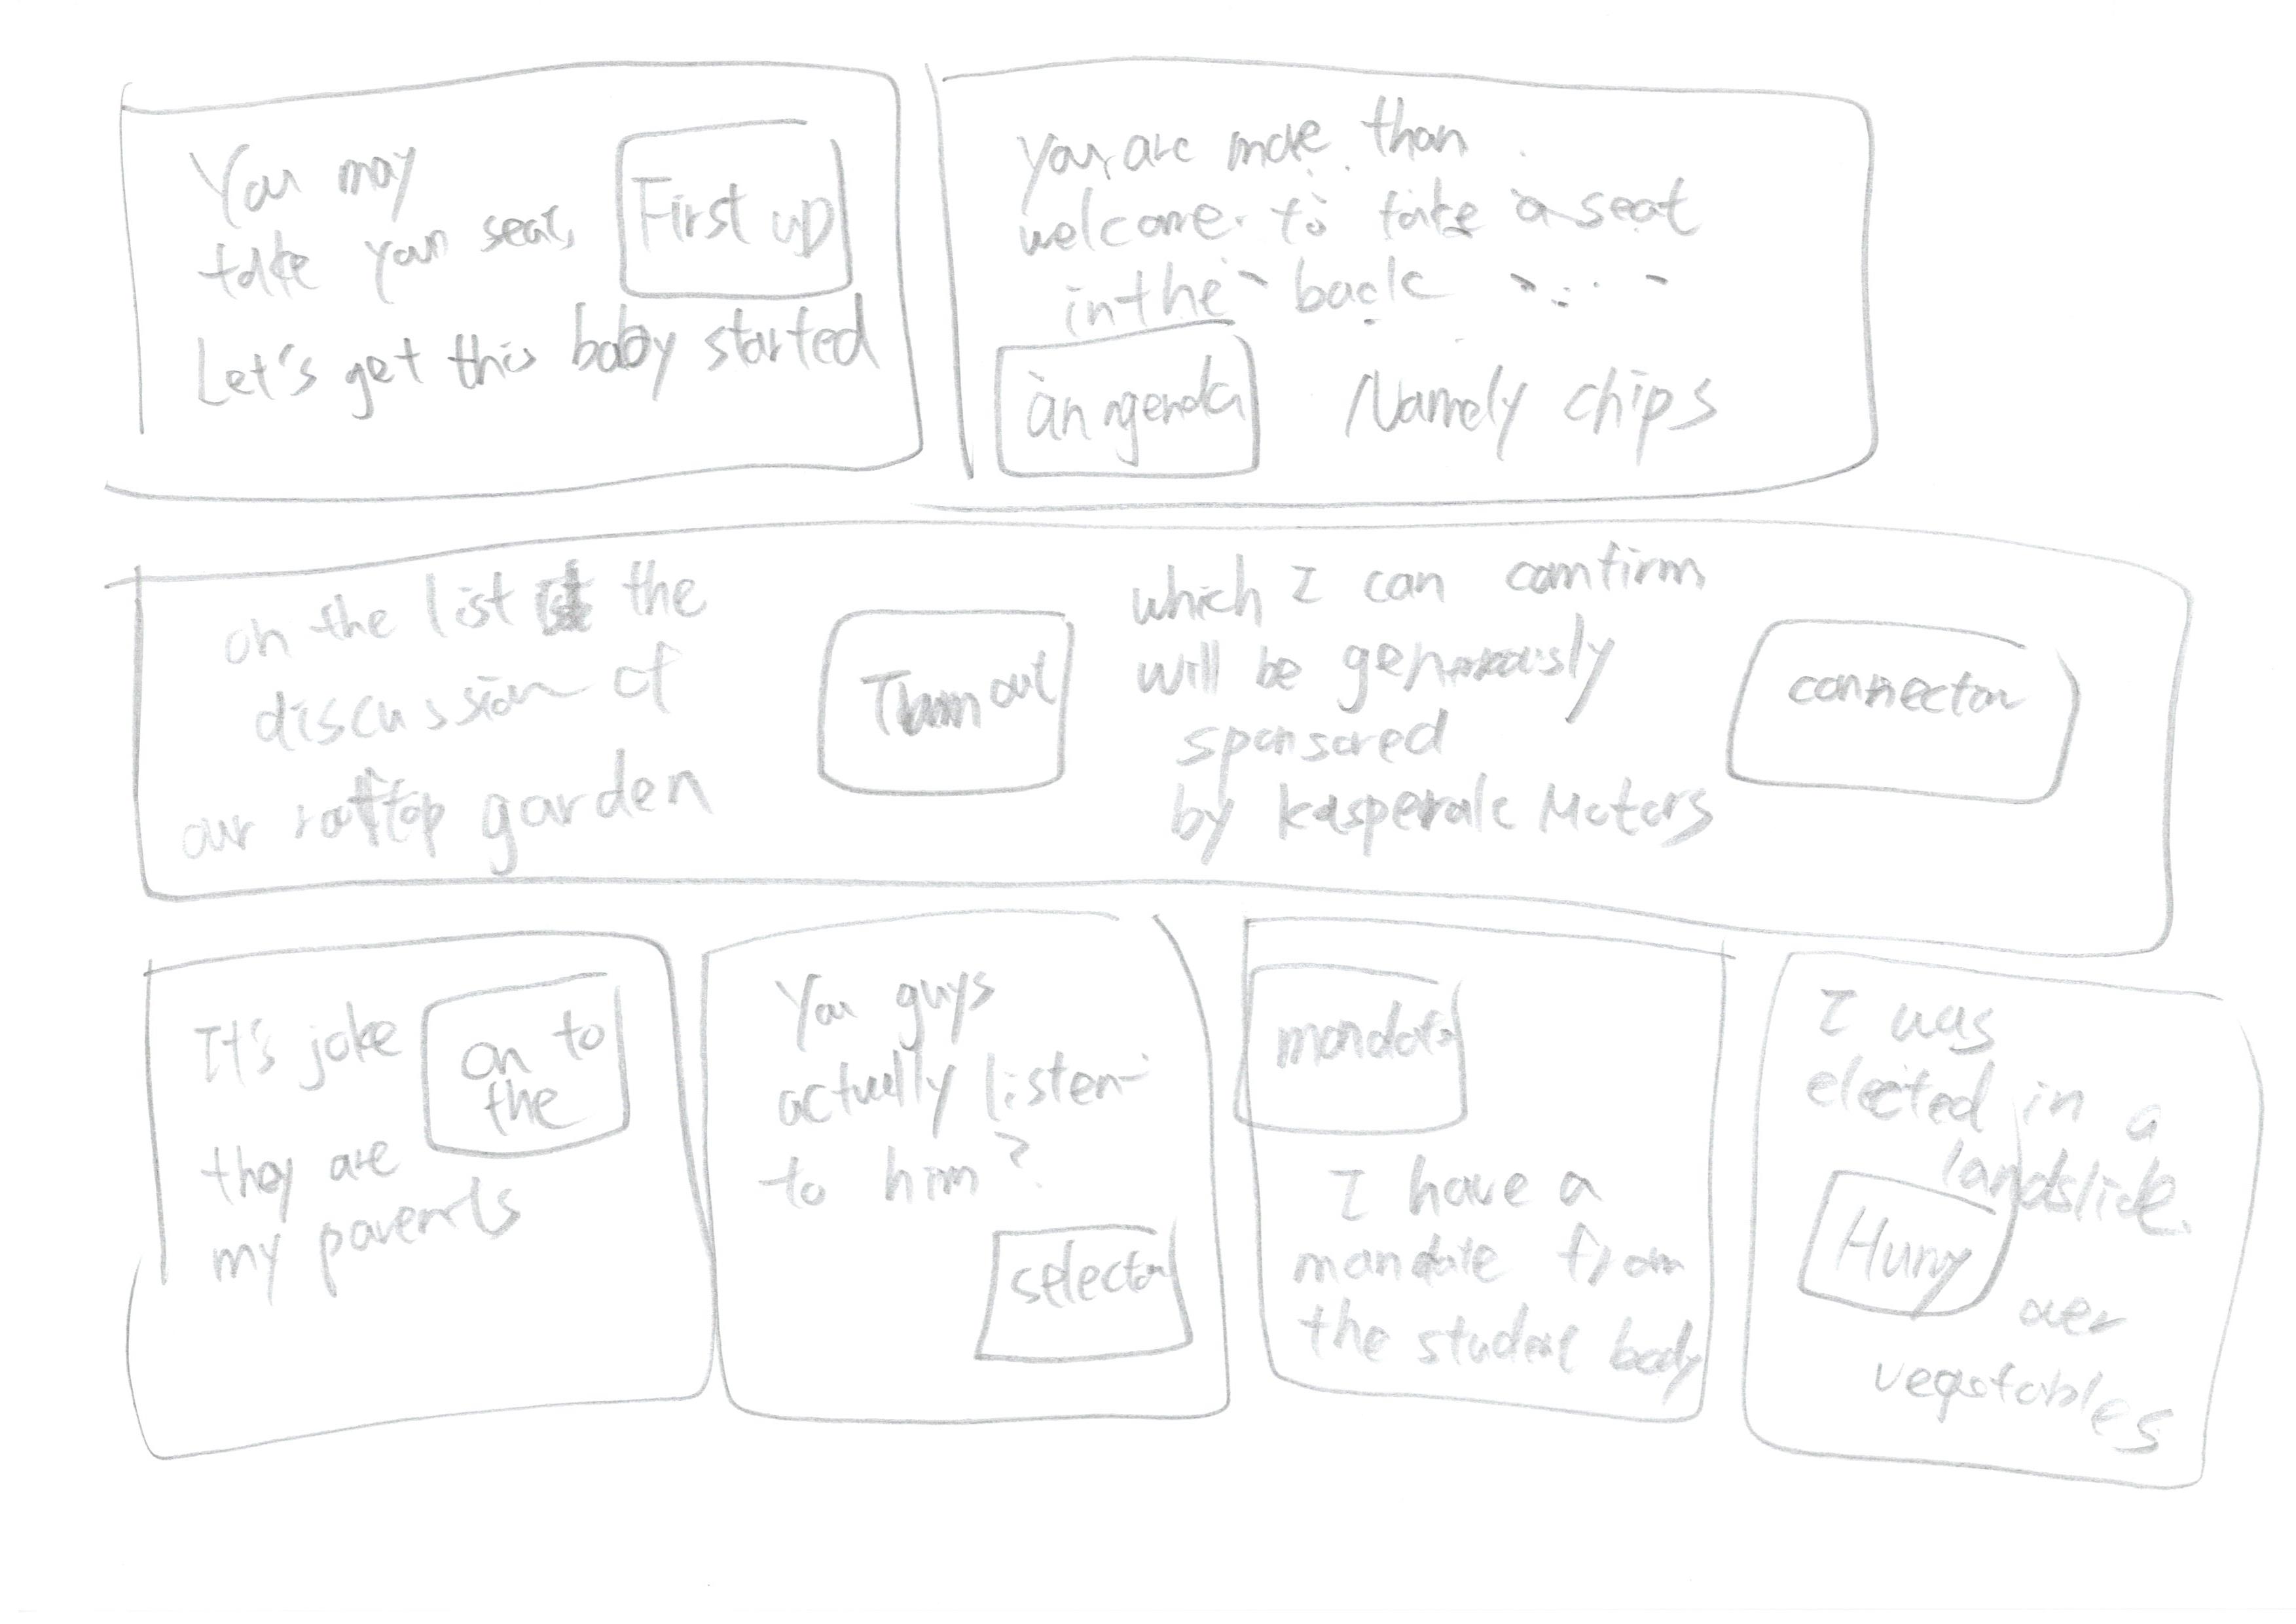 You may
take your seat,
First up
Let's get this baby started
You are more than
welcome to take a seat
in the back
an agenda
Namely chips
on the list is the
discussion of
our rooftop garden
Turn out
which I can comfirm
will be generously
sponsored
by Kasperale Motors
connector
It's joke
on to
the
they are
my parents
You guys
actually listen
to him?
selector
mandate
I have a
mandate from
the student body
I was
elected in a
landslide.
Hurry
over
vegetables